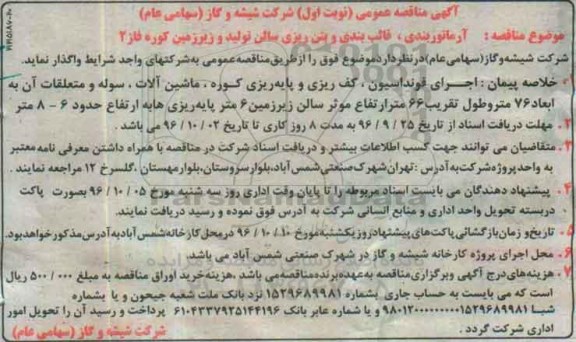 آگهی مناقصه عمومی (نوبت اول) شرکت شیشه و گاز (سهامی عام)
موضوع مناقصه : آرماتوربندی ، قالب بندی و بتن ریزی سالن تولید و زیرزمین کوره فاز۲
شرکت شیشه‌وگاز(سهامی‌عام)درنظرداردموضوع فوق را ازطریق‌مناقصه‌عمومی به‌شرکتهای واجد شرایط واگذار نماید.
۱. خلاصه پیمان : اجـرای فونداسیون ، کف ریزی و پایه‌ریزی کـوره ، ماشین آلات ، سوله و متعلقات آن به
ابعاد۷۶ متروطول تقریب۶۶ مترارتفاع موثر سالن زیرزمین۶ متر پایه‌ریزی هابه ارتفاع حدود ۶ - ۸ متر
۲. مهلت دریافت اسناد از تاریخ ۲۵ / ۹ / ۹۶ به مدت ۸ روز کاری تا تاریخ ۰۲ / ۱۰ / ۹۶ می باشد .
۳. متقاضیان می توانند جهت کسب اطلاعات بیشتر و دریافت اسناد شرکت در مناقصه با همراه داشتن معرفی نامه معتبر
به واحد پروژه شرکت به آدرس : تهران‌شهرک‌صنعتی‌شمس‌آباد،بلوارسروستان،بلوارمهستان ،گلسرخ ۱۲ مراجعه نمایند .
۴. پیشنهاد دهندگان می بایست اسناد مربوطه را تا پایان وقت اداری روز سه شنبه مورخ ۰۵ / ۱۰ / ۹۶ بصورت پاکت
دربسته تحویل واحد اداری و منابع انسانی شرکت به آدرس فوق نموده و رسید دریافت نمایند.
۵. تاریخ‌و زمان‌بازگشائی‌پاکت‌های‌پیشنهادروزیکشنبه‌مورخ ۱۰ / ۱۰ / ۹۶ درمحل‌کارخانه‌شمس‌آبادبه‌آدرس‌مذکورخواهدبود.
۶. محل اجرای پروژه کارخانه شیشه و گاز در شهرک صنعتی شمس آباد می باشد.
۷. هزینه‌های‌درج آگهی وبرگزاری‌مناقصه به‌عهده‌برنده‌مناقصه‌می باشد ،هزینه‌خرید اوراق مناقصه به مبلغ ۵۰۰/۰۰۰ ریال
است که می بایست به حساب جاری بشماره ۱۵۲۹۶۸۹۹۸۱ نزد بانک ملت شعبه جیحون و یا بشماره
شبا ۹۸۰۱۲۰۰۰۰۰۰۰۰۰۱۵۲۹۶۸۹۹۸۱ و یا شماره عابر بانک ۶۱۰۴۳۳۷۹۲۵۱۴۴۱۹۶ پرداخت و رسید آن را تحویل امور
اداری شرکت گردد .
شرکت شیشه و گاز (سهامی عام)